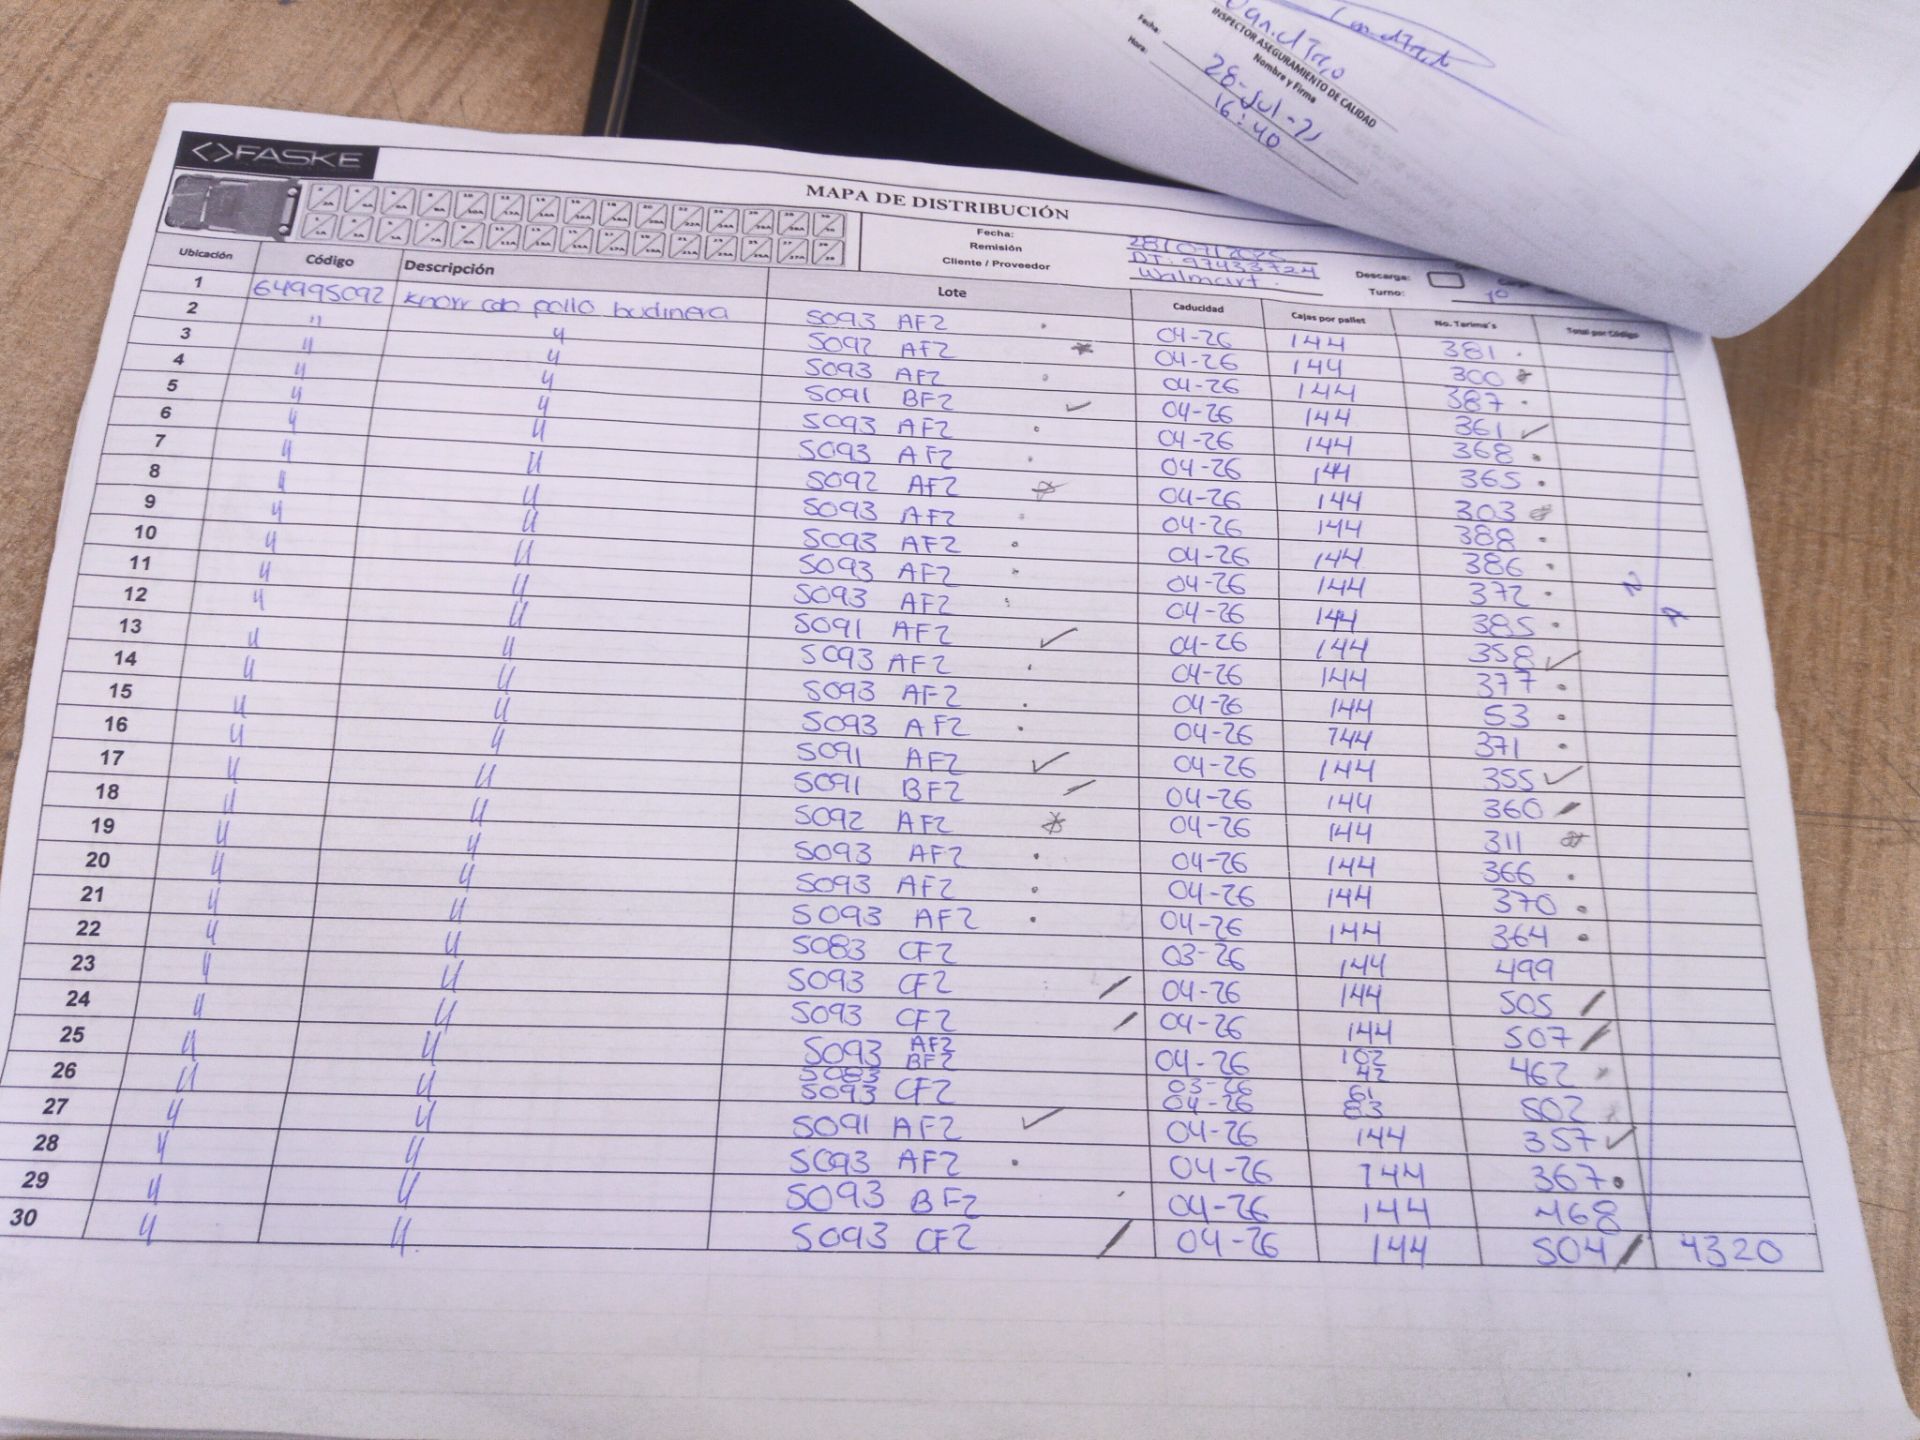 INSPECTOR ASEGURAMIENTO DE CALIDAD
Nombre y Firma
Fecha: 28-Jul-21
Hora: 16:40
<>FASKE
MAPA DE DISTRIBUCIÓN
Fecha: 28/07/2025
Remisión DT: 97433724
Cliente / Proveedor Walmart.
Descarga:
Turno: 1º
Ubicación Código Descripción Lote Caducidad Cajas por pallet No. Tarima's Total por Código
1 64995092 Knorr cdo pollo budinera S093 AF2 04-26 144 381
2 " " S092 AF2 04-26 144 300
3 " " S093 AF2 04-26 144 387
4 " " S091 BF2 04-26 144 361
5 " " S093 AF2 04-26 144 368
6 " " S093 AF2 04-26 144 365
7 " " S092 AF2 04-26 144 303
8 " " S093 AF2 04-26 144 388
9 " " S093 AF2 04-26 144 386
10 " " S093 AF2 04-26 144 372
11 " " S093 AF2 04-26 144 385
12 " " S091 AF2 04-26 144 358
13 " " S093 AF2 04-26 144 377
14 " " S093 AF2 04-26 144 53
15 " " S093 AF2 04-26 144 371
16 " " S091 AF2 04-26 144 355
17 " " S091 BF2 04-26 144 360
18 " " S092 AF2 04-26 144 311
19 " " S093 AF2 04-26 144 366
20 " " S093 AF2 04-26 144 370
21 " " S093 AF2 04-26 144 364
22 " " S083 CF2 03-26 144 499
23 " " S093 CF2 04-26 144 505
24 " " S093 CF2 04-26 144 507
25 " " S093 AF2 BF2 04-26 102 42 462
26 " " S083 S093 CF2 03-26 04-26 61 83 502
27 " " S091 AF2 04-26 144 357
28 " " S093 AF2 04-26 144 367
29 " " S093 BF2 04-26 144 468
30 " " S093 CF2 04-26 144 504 4320